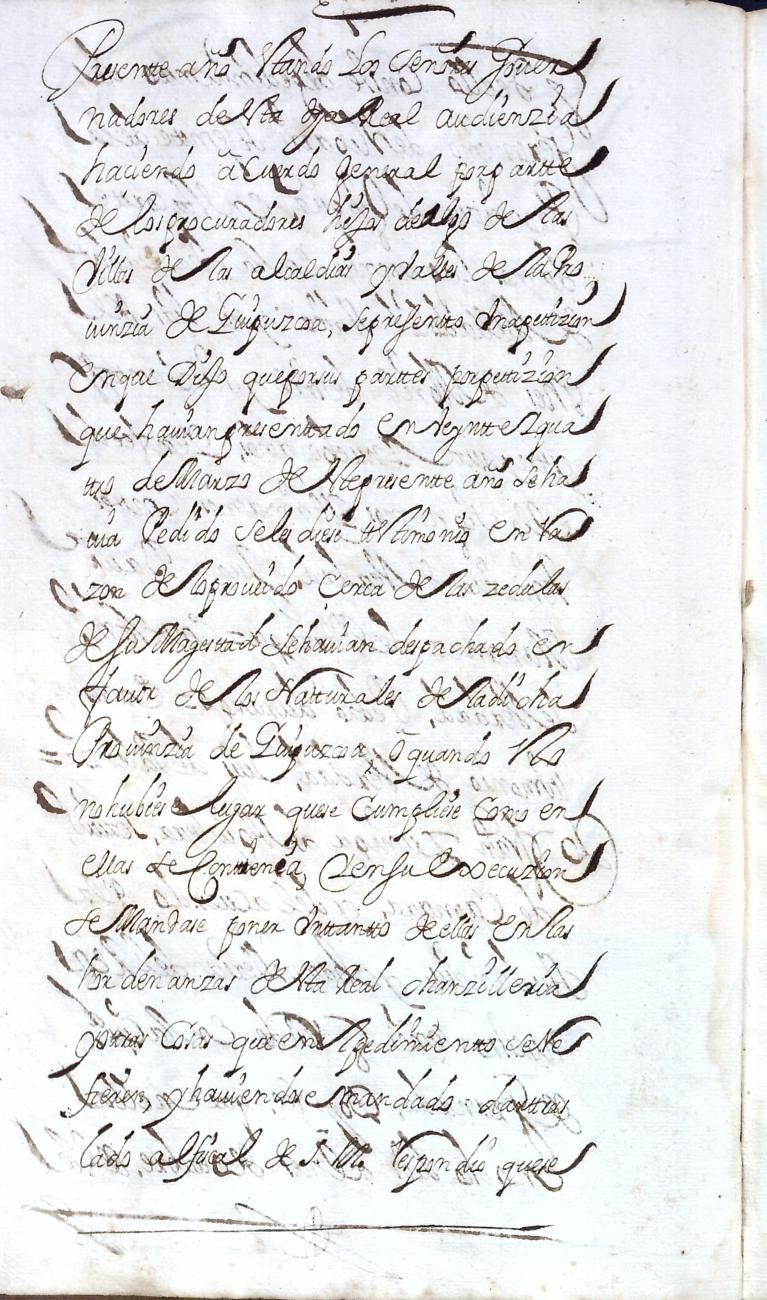 Presentte año Stando Los Señores Gover
nadores de Sta dha Real audienzia
haciendo acuerdo general por partte
de los procuradores hijos dealgo de las
Villas de las alcaldias y Valles de la Pro
uinzia de Guipuzcoa, se presentto Vna petizion
en que Dijo que por sus parttes por petizion
que hauian presenttado en Veyntte y qua
ttro de Marzo de Ste presentte año se ha
uia Pedido se les diese ttestimonio en Ra
zon de lo proveido cerca de las zedulas
de su Magesttad se hauian despachado en
fauor de los Natturales de la dicha
Prouinzia de Guipuzcoa, o quando Sto
no hubiese lugar que se Cumpliese como en
ellas se Conttenia, y en su Execuzion
se Mandase poner Vn ttantto de ellas en las
hordenanzas de Sta Real chanzilleria
y ottras Cosas que en el pedimientto se Re
fieren, y hauiendose mandado dar ttras
lado al fiscal de S. M. Respondio que se